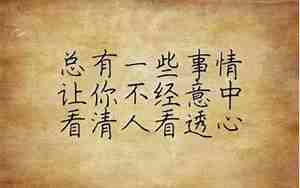 总有一些事情
让你不经意中
看清人看透心